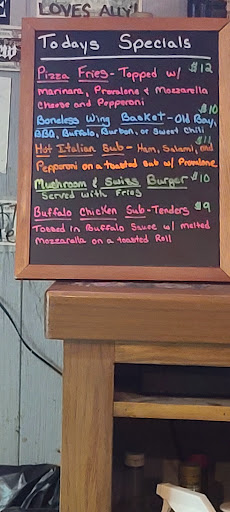 LOVES ALLY
Todays Specials
Pizza Fries - Topped w/ $12
Marinara, Provolone & Mozzarella
Cheese and Pepperoni
$10
Boneless Wing Basket - Old Bay,
BBQ, Buffalo, Burbon, or Sweet Chili
$11
Hot Italian Sub - Ham, Salami, and
Pepperoni on a toasted Sub w/ Provolone
Mushroom & Swiss Burger $10
Served with Fries
Buffalo Chicken Sub - Tenders $9
Tossed in Buffalo Sauce w/ melted
Mozzarella on a toasted Roll